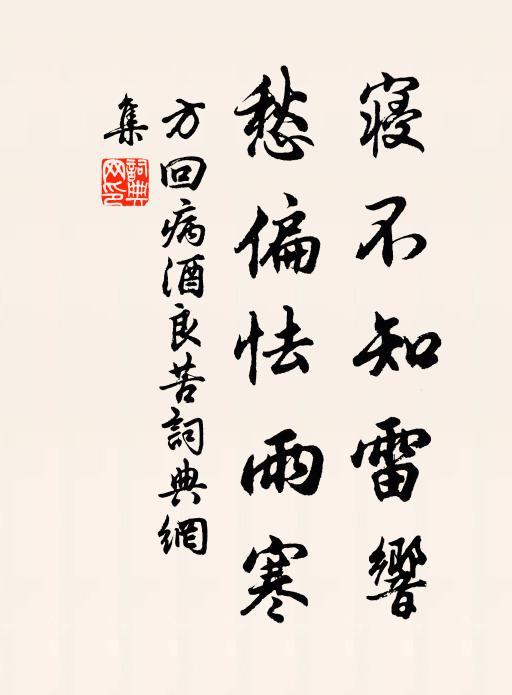 寢不知雷響
愁偏怯雨寒
方回病酒良苦詞典網
集
詞典網印